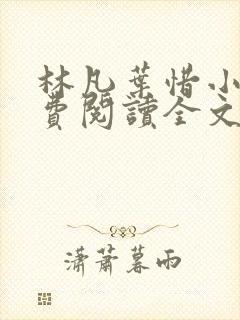 林凡葉惜小
費閱讀全文
瀟蕭暮雨